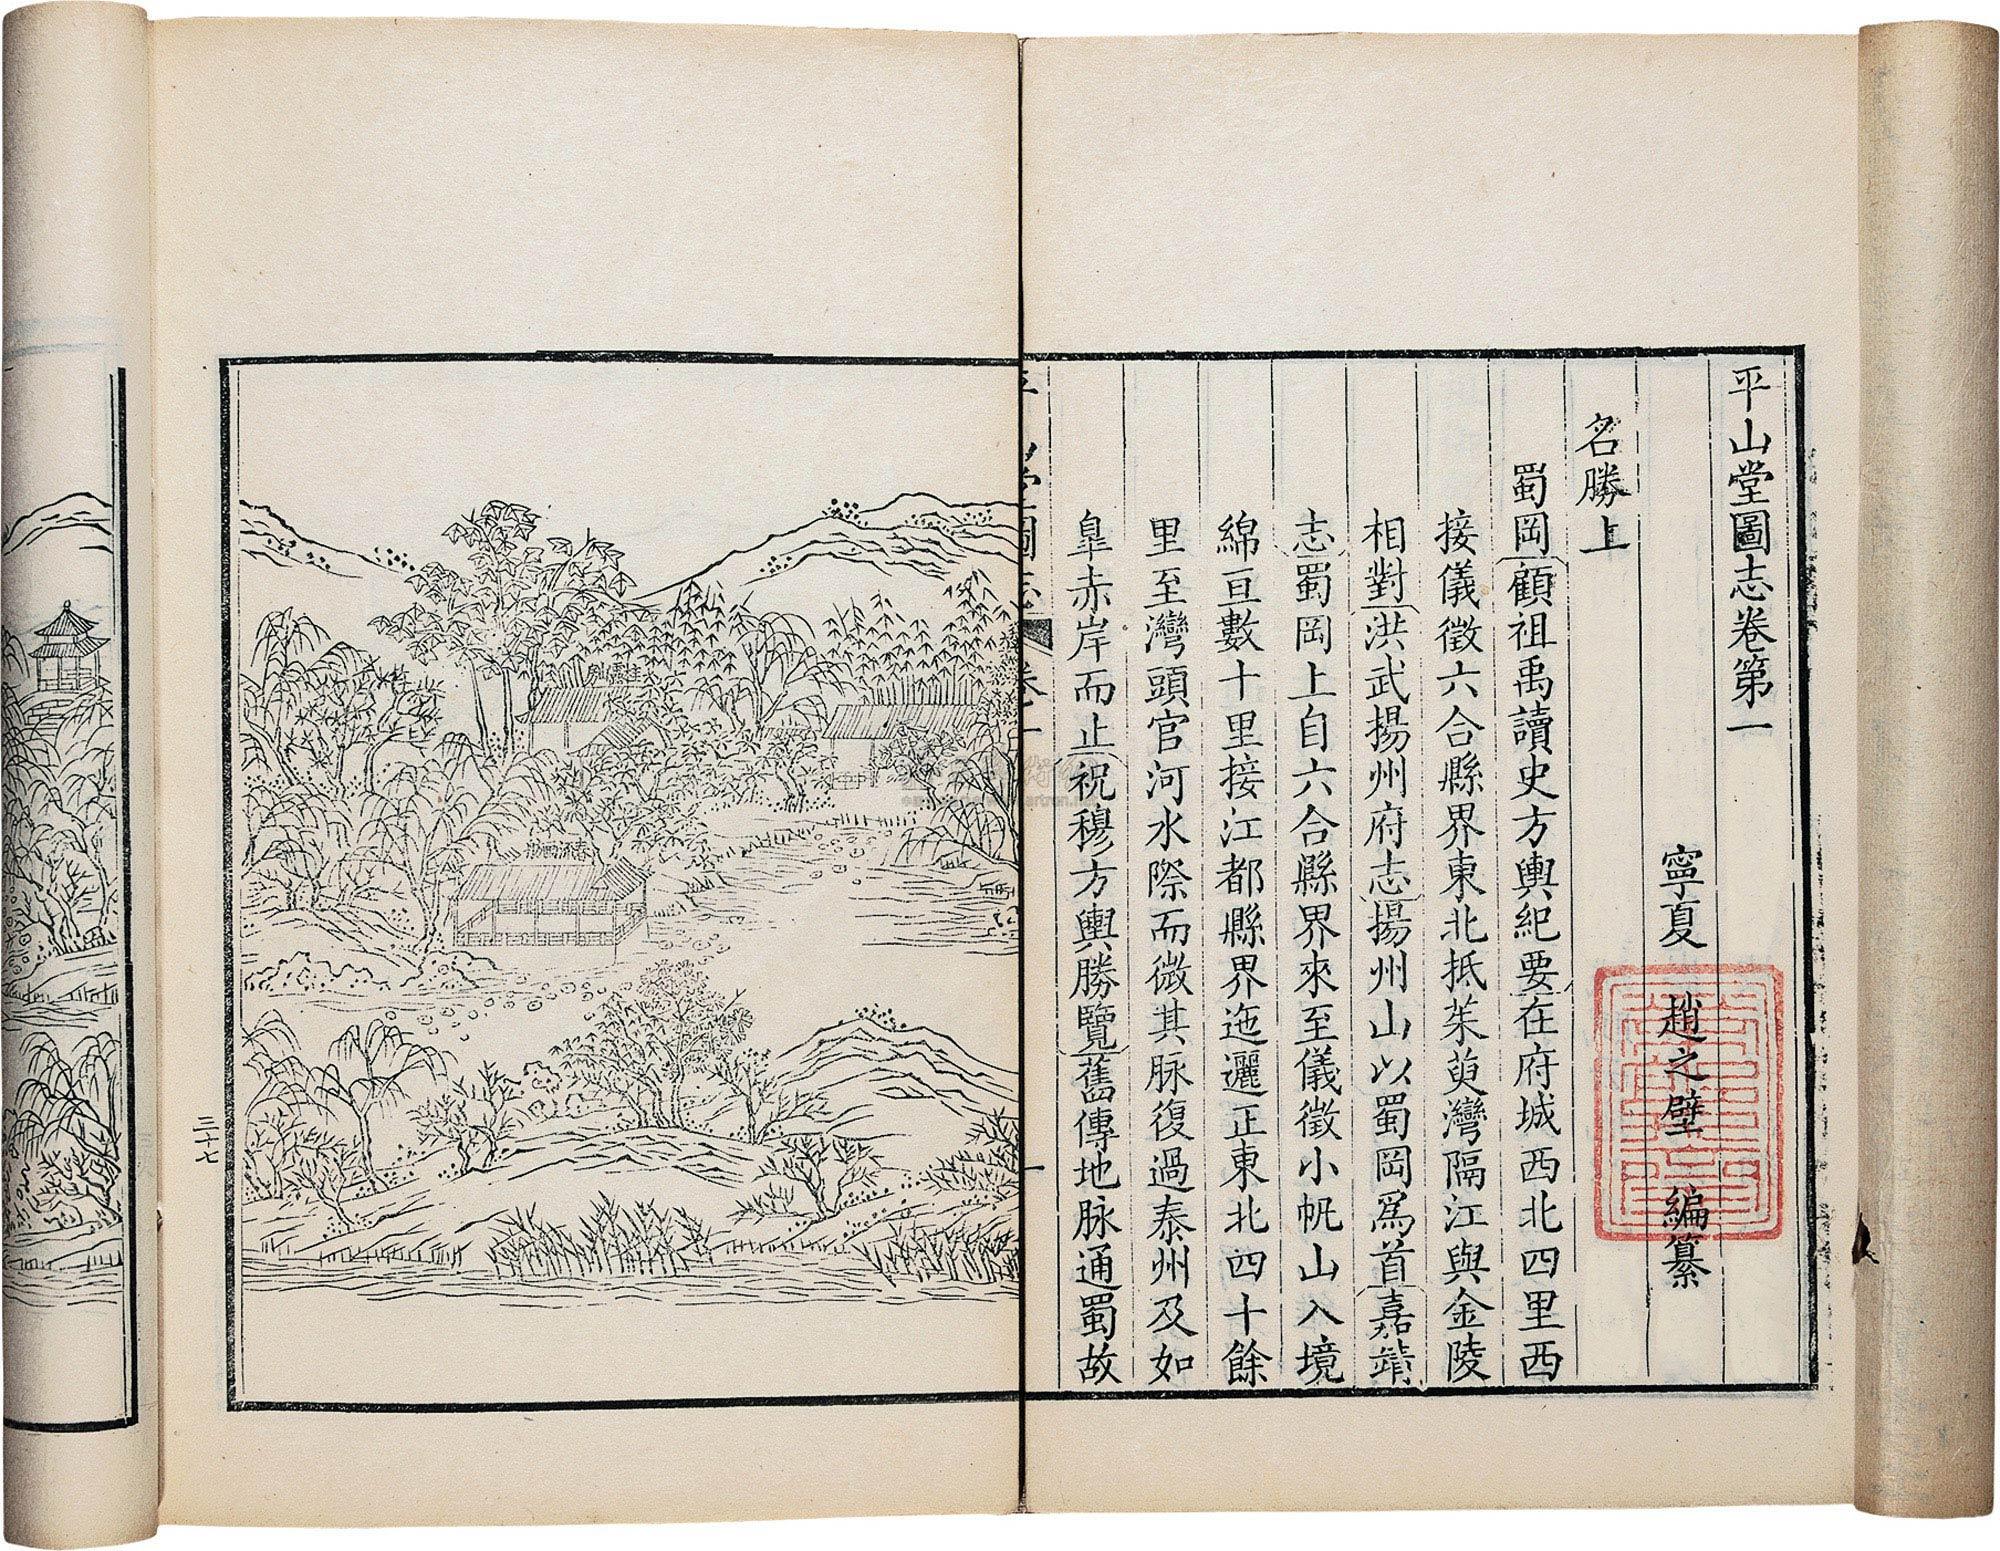 平山堂圖志卷第一
寧夏 趙之壁 編纂
名勝上
蜀岡顧祖禹讀史方輿紀要在府城西北四里西
接儀徵六合縣界東北抵茱萸灣隔江與金陵
相對洪武揚州府志揚州山以蜀岡爲首嘉靖
志蜀岡上自六合縣界來至儀徵小帆山入境
綿亘數十里接江都縣界迤邐正東北四十餘
里至灣頭官河水際而微其脉復過泰州及如
臯赤岸而止祝穆方輿勝覽舊傳地脉通蜀故
三十七